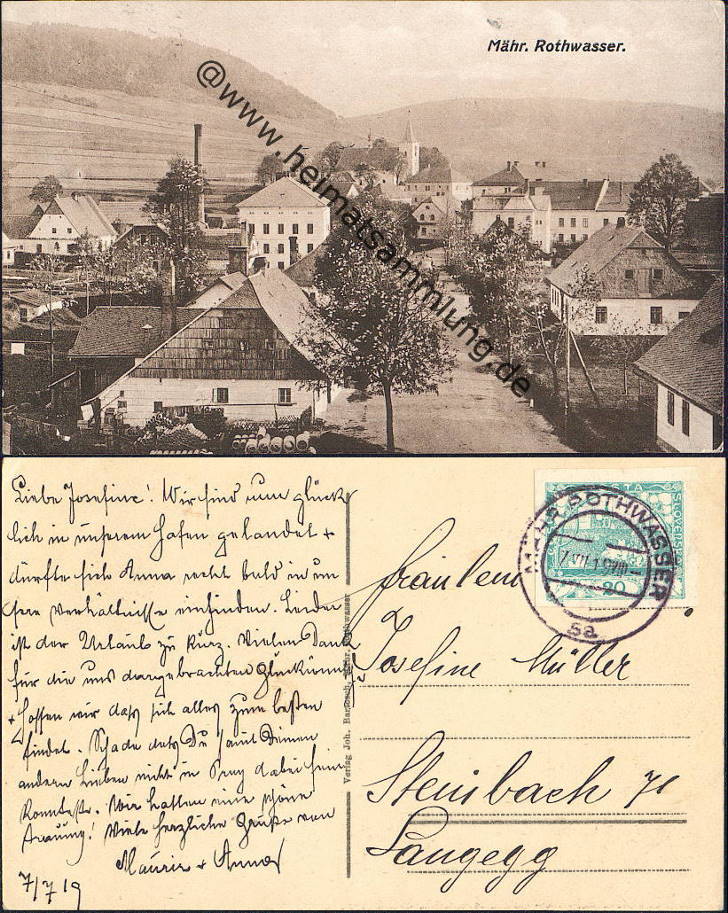 Mähr. Rothwasser.
@www.heimatsammlung.de
Liebe Josefine! Wir sind nun glück
lich in unserem Hafen gelandet +
dürfte sich Anna recht bald in un
sere Verhältnisse einfinden. Leider
ist der Urlaub zu kurz. Vielen Dank
für die uns dargebrachten Glückwünsche
+ hoffen wir daß sich alles zum besten
findet. Schade daß Du samt Deinen
andern Lieben nicht in Prag dabei sein
konntest. Wir hatten eine schöne
Trauung! Viele herzliche Grüße von
Mauric + Anna
7/7 19
Verlag Joh. Mähr. Rothwasser
MÄHR. ROTHWASSER
20
5a
Fräulein
Josefine Müller
Steinbach 71
Langegg